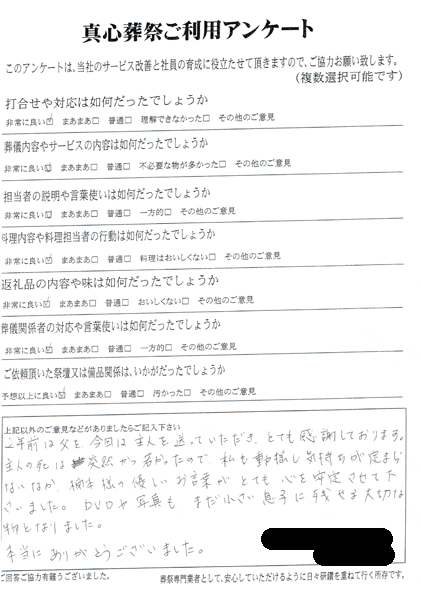 真心葬祭ご利用アンケート
このアンケートは、当社のサービス改善と社員の育成に役立たせて頂きますので、ご協力お願い致します。
(複数選択可能です)
打合せや対応は如何だったでしょうか
非常に良い☑ まあまあ□ 普通□ 理解できなかった□ その他のご意見
葬儀内容やサービスの内容は如何だったでしょうか
非常に良い☑ まあまあ□ 普通□ 不必要な物が多かった□ その他のご意見
担当者の説明や言葉使いは如何だったでしょうか
非常に良い☑ まあまあ□ 普通□ 一方的□ その他のご意見
料理内容や料理担当者の行動は如何だったでしょうか
非常に良い☑ まあまあ□ 普通□ 料理はおいしくない□ その他のご意見
返礼品の内容や味は如何だったでしょうか
非常に良い☑ まあまあ□ 普通□ おいしくない□ その他のご意見
葬儀関係者の対応や言葉使いは如何だったでしょうか
非常に良い☑ まあまあ□ 普通□ 一方的□ その他のご意見
ご依頼頂いた祭壇又は備品関係は、いかがだったでしょうか
予想以上に良い☑ まあまあ□ 普通□ 汚かった□ その他のご意見
上記以外のご意見などがありましたらご記入下さい
2年前は父を、今回は主人を送っていただき、とても感謝しております。
主人の死は突然かつ若かったので、私も動揺し気持ちが定まら
ないなか、楠本様の優しいお言葉がとても心を安定させて下
さいました。DVDや写真も、まだ小さい息子に残せる大切な
物となりました。
本当にありがとうございました。
ご回答ご協力有難うございました。
葬祭専門業者として、安心していただけるように日々研鑽を重ねて行く所存です。